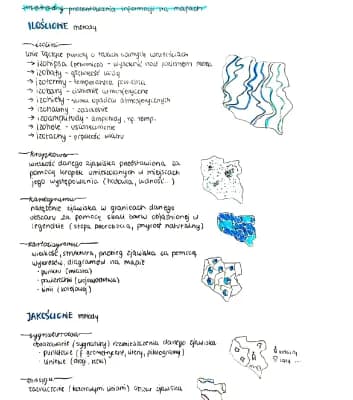 metody prezentowania informacji na mapach
ILOŚCIOWE metody
linie łączące punkty o takich samych wartościach
→ izohipsa (poziomica) - wysokość nad poziomem morza
→ izobaty - głębokość wody
→ izotermy - temperatura powietrza
→ izobary - ciśnienie atmosferyczne
→ izohiety - suma opadów atmosferycznych
→ izohaliny - zasolenie
→ izoamplitudy - amplitudy np. temp.
→ izohele - usłonecznienie
→ izotachy - prędkość wiatru
kropkowa
wielkość danego zjawiska przedstawiona za
pomocą kropek umieszczonych w miejscach
jego występowania (hodowla, ludność..)
kartogramu
natężenie zjawiska w granicach danego
obszaru za pomocą skali barw objaśnionej w
legendzie (stopa bezrobocia, przyrost naturalny)
kartodiagramu
wielkość, struktura, przebieg zjawiska za pomocą
wykresów, diagramów na mapie
- punktu (miasta)
- powierzchni (województwa)
- linii (kolejowej)
JAKOŚCIOWE metody
sygnaturowa
obrazowanie (sygnatury) rozmieszczenia danego zjawiska
- punktowe (f. geometryczne, litery, piktogramy)
- liniowe
zasięgu
zaznaczone (kolorowymi liniami) obszar zjawiska